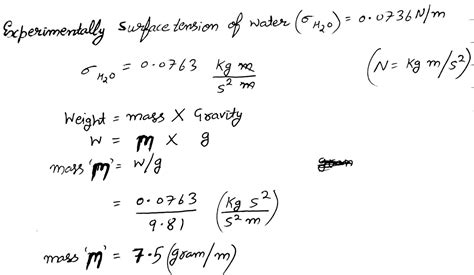 Experimentally Surface tension of water (σH₂O) = 0.0736 N/m
σH₂O = 0.0763 Kg m / s² m (N = Kg m/s²)
Weight = mass X Gravity
W = m X g
mass 'm' = W/g
= 0.0763 / 9.81 (Kg s² / s² m)
mass 'm' = 7.5 (gram/m)